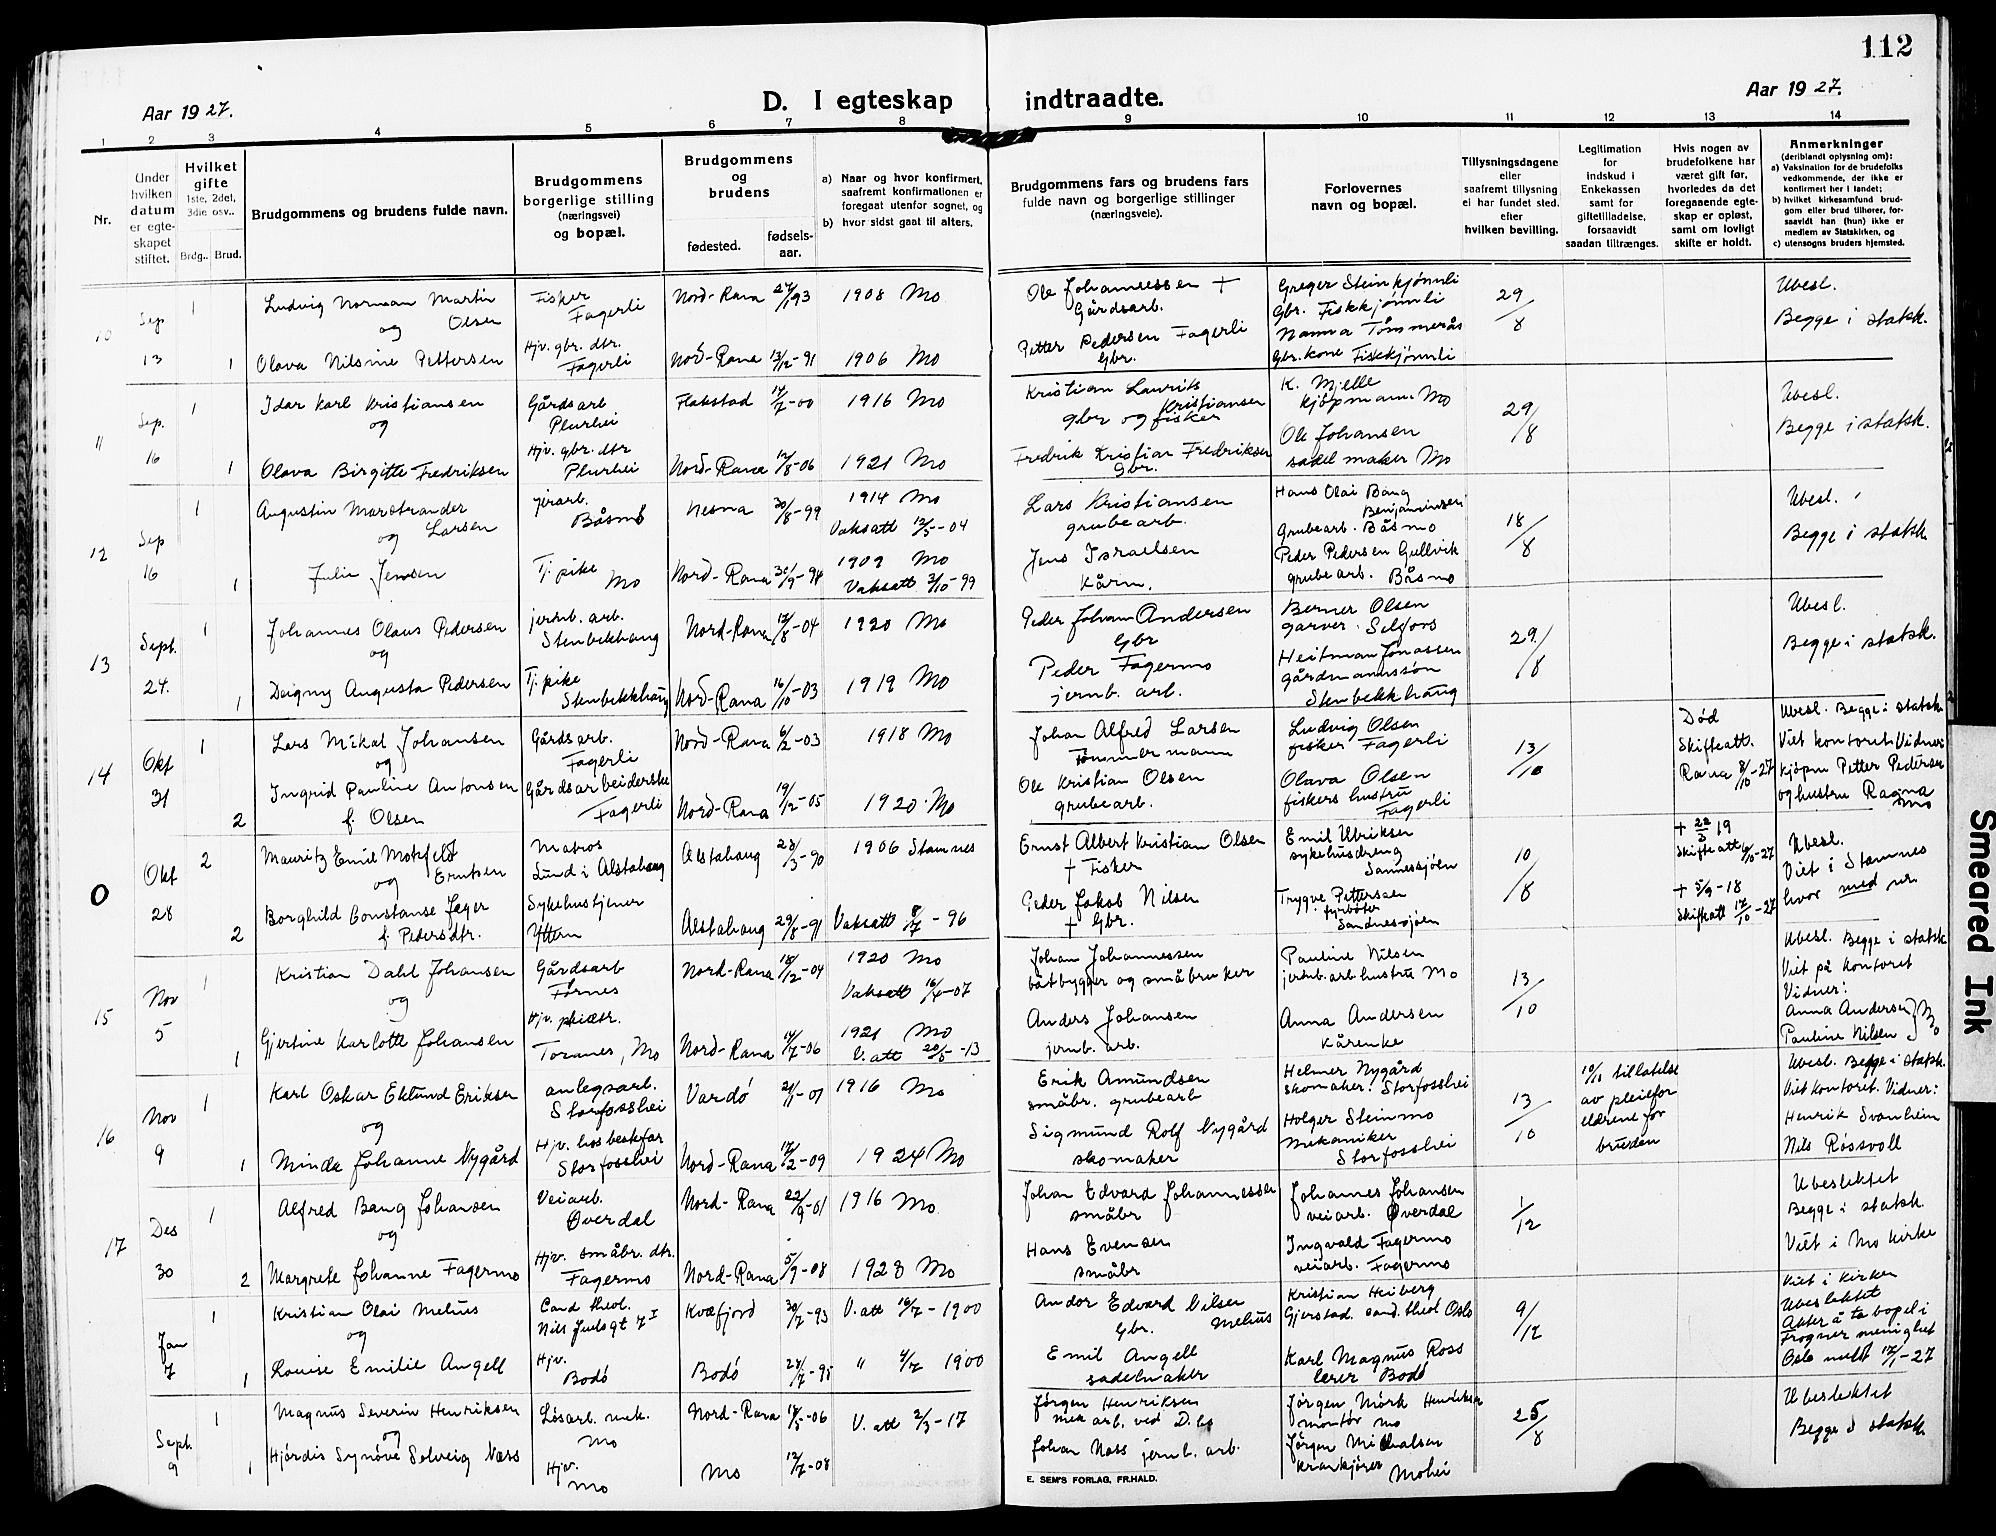 112
Aar 1927.
D. I egteskap indtraadte.
Aar 1927.
1 2 3 4 5 6 7 8 9 10 11 12 13 14
Nr.
Under hvilken datum er egteskapet stiftet.
Hvilket gifte
1ste, 2det, 3die osv..
Brdg..
Brud.
Brudgommens og brudens fulde navn.
Brudgommens borgerlige stilling (næringsvei) og bopæl.
Brudgommens og brudens
fødested.
fødselsaar.
a) Naar og hvor konfirmert, saafremt konfirmationen er foregaat utenfor sognet, og
b) hvor sidst gaat til alters.
Brudgommens fars og brudens fars fulde navn og borgerlige stillinger (næringsveie).
Forlovernes navn og bopæl.
Tillysningsdagene eller saafremt tillysning ei har fundet sted. efter hvilken bevilling.
Legitimation for indskud i Enkekassen samt for giftetilladelse, forsaavidt saadan tiltrænges.
Hvis nogen av brudefolkene har været gift før, hvorledes da det foregaaende egteskap er opløst, samt om lovligt skifte er holdt.
Anmerkninger
(deriblandt oplysning om):
a) Vaksination for de brudefolks vedkommende, der ikke er konfirmert her i landet;
b) hvilket kirkesamfund brudgom eller brud tilhører, forsaavidt han (hun) ikke er medlem av Statskirken, og
c) utensogns bruders hjemsted.
10 Sep 13 1 Ludvig Norman Martin Olsen Fisker Fagerli Nord-Rana 24/1 93 1908 Mo Ole Johannessen + Gårdsarb. Greger Steinkjønnli Gbr. Fiskkjønnli 29/8 Ubesl. Begge i statsk.
og
1 Olava Nilsine Pettersen Hjv. gbr. dtr. Fagerli Nord-Rana 13/12-91 1906 Mo Petter Pedersen Fagerli Gbr. Nanna Tømmerås Gbr. kone Fiskkjønnli
11 Sep. 16 1 Idar Karl Kristiansen Gårdsarb Plurhei Flakstad 17/7-00 1916 Mo Kristian Laurits Kristiansen gbr og fisker K. Mjelle kjøpmann Mo 29/8 Ubesl. Begge i statsk.
og
1 Olava Birgitte Fredriksen Hjv. gbr. dtr Plurhei Nord-Rana 12/8-06 1921 Mo Fredrik Kristian Fredriksen Gbr. Ole Johansen sadelmaker Mo
12 Sep 16 1 Augustin Marstrander Larsen jerarb. Båsmo Nesna 30/8-99 1914 Mo Vaksatt 12/5-04 Lars Kristiansen grubearb. Hans Olai Bang Benjaminsen Grubearb. Båsmo 18/8 Ubesl. Begge i statsk
og
1 Julie Jensen Tj. pike Mo Nord-Rana 30/9-94 1909 Mo Vaksatt 3/10-99 Jens Israelsen Kårm. Peder Pedersen Gullvik grubearb. Båsmo
13 Sept. 24. 1 Johannes Olaus Pedersen jernb. arb. Stenbekkhaug Nord-Rana 12/8-04 1920 Mo Peder Johan Andersen Gbr Berner Olsen garver. Selfors 29/8 Ubesl. Begge i statsk.
og
1 Dagny Augusta Pedersen Tj. pike Stenbekkhaug Nord-Rana 16/10-03 1919 Mo Peder Fagermo jernb. arb. Heitman Jonassen gårdmannssøn Stenbekkhaug
14 Okt 31 1 Lars Mikal Johansen Gårdsarb. Fagerli Nord-Rana 6/2-03 1918 Mo Johan Alfred Larsen Tømmermann Ludvig Olsen fisker Fagerli 13/10 Død Skifteatt. Rana 8/10-27 Ubesl. Begge i statsk Viet kontoret. Vidner: kjøpm Petter Pedersen og hustru Ragna Mo
og
2 Ingrid Pauline Antonsen f. Olsen Gårdsarbeiderske Fagerli Nord-Rana 19/12-05 1920 Mo Ole Kristian Olsen grubearb. Olava Olsen fiskers hustru Fagerli
0 Okt 28 2 Mauritz Emil Motzfeld Erntsen Matros Sund i Alstahaug Alstahaug 28/3-90 1906 Stamnes Ernst Albert Kristian Olsen + Fisker Emil Ulriksen sykehusdreng Sannessjøen 10/8 + 22/3 19 Skifteatt 6/10-27 Ubesl. Viet i Stamnes hvor med nr.
og
2 Borghild Constanse Jæger f. Pedersdtr. Sykehustjener Ytten Alstahaug 29/8-91 Vaksatt 8/7-96 Peder Jakob Nilsen + Gbr. Trygve Pettersen fyrbøter Sandnessjøen + 5/9-18 Skifteatt 17/10-27
15 Nov 5 1 Kristian Dahl Johansen Gårdsarb Førnes Nord-Rana 18/12-04 1920 Mo Vaksatt 16/4-07 Johan Johannessen båtbygger og småbruker Pauline Nilsen jernb. arb hustru Mo 13/10 Ubesl. Begge i statsk Viet på kontoret Vidner: Anna Andersen Pauline Nilsen } Mo
og
1 Gjertine Karlotte Johansen Hjv. pleiedtr. Toranes, Mo Nord-Rana 14/7-06 1921 Mo V. att 20/5-13 Anders Johansen jernb. arb. Anna Andersen kårenke
16 Nov 9 1 Karl Oskar Eklund Eriksen anlegsarb. Storfosshei Vardø 21/1-07 1916 Mo Erik Amundsen småbr. grubearb Helmer Nygård skomaker. Storfosshei 13/10 10/11 tillatelse av pleiefor eldrene for bruden Ubesl. Begge i statsk. Viet kontoret. Vidner: Henrik Svanheim Nils Røssvoll
og
1 Minda Johanne Nygård Hjv. hos bestefar Storfosshei Nord-Rana 17/2-09 1924 Mo Sigmund Rolf Nygård skomaker Holger Steinmo mekaniker Storfosshei
17 Des 30 1 Alfred Bang Johansen Veiarb. Øverdal Nord-Rana 22/9-01 1916 Mo Johan Edvard Johannessen småbr Johannes Johansen veiarb. Øverdal 1/12 Ubeslektet Begge i statsk. Viet i Mo kirke
og
2 Margrete Johanne Fagermo Hjv. småbr. dtr. Fagermo Nord-Rana 5/9-08 1923 Mo Hans Evensen småbr Ingvald Fagermo veiarb. Fagermo
Jan 7 1 Kristian Olai Melius Cand theol. Nils Juelsgt 7 I Kvæfjord 30/7-93 V. att 16/7-1900 Andor Edvard Nilsen Melius Gbr. Kristian Heiberg Gjerstad. cand. theol Oslo 9/12 Viet i kirken Ubeslektet Akter å ta bopel i Frogner menighet Oslo meldt 12/1-27
og
1 Louise Emilie Angell Hjv. Bodø Bodø 28/7-95 " 4/7 1900 Emil Angell sadelmaker Karl Magnus Ross lærer Bodø
Sept. 9 1 Magnus Severin Henriksen Løsarb. mek. Mo Nord-Rana 18/5-06 V. att 2/3-17 Jørgen Henriksen mek arb. ved D. Jørgen Mørk Henriksen montør Mo 25/8 Ubeslektet Begge i statsk.
og
1 Hjørdis Synøve Solveig Næss Hjv. Mo Mo 12/7-08 Johan Næss jernb. arb. Jørgen Michalsen krankjører Mohei
E. SEM'S FORLAG, FR.HALD.
Smeared Ink